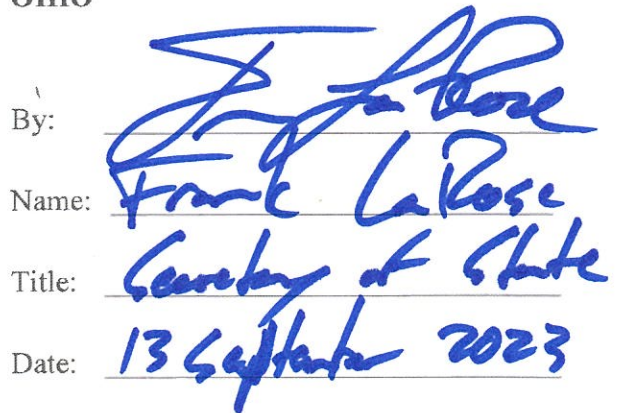 Ohio
By: Frank LaRose
Name: Frank LaRose
Title: Secretary of State
Date: 13 September 2023